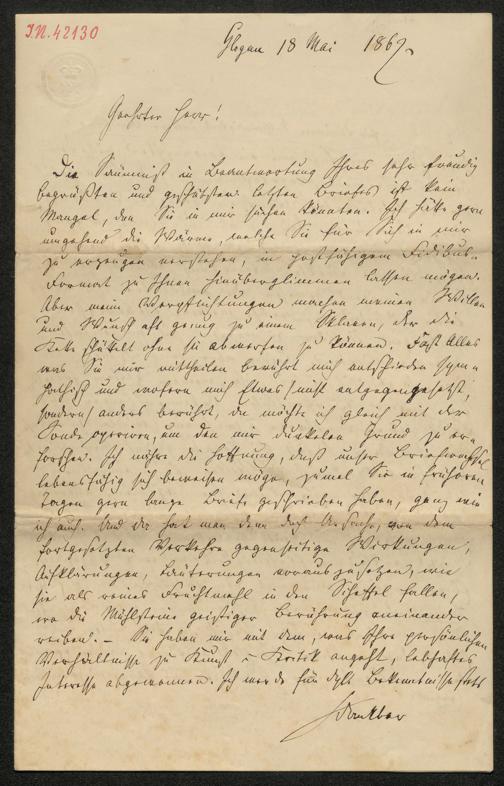 I.N. 42130
Glogau 18 Mai 1867.
Geehrter Herr!
Die Säumniß in Beantwortung Ihres sehr freudig
begrüßten und geschätzten letzten Briefes ist kein
Mangel, den Sie in mir suchen könnten. Ich hätte gern
umgehend die Wärme, welche Sie für Sich in mir
zu erzeugen verstehen, in postfähigem Fidibus-
Format zu Ihnen hinüberglimmen lassen mögen.
Aber meine Verpflichtungen machen meinen Willen
und Wunsch oft genug zu einem Sklaven, der die
Kette schüttelt ohne sie abwerfen zu können. Fast Alles
was Sie mir mittheilen berührt mich entschieden sym-
pathisch und wofern mich Etwas (nicht entgegengesetzt,
sondern) anders berührt, da möchte ich gleich mit der
Sonde operiren, um den mir dunkelen Grund zu er-
forschen. Ich nähre die Hoffnung, daß unser Briefwechsel
lebensfähig sich beweisen möge, zumal Sie in früheren
Tagen gern lange Briefe geschrieben haben, ganz wie
ich auch. Und da hat man denn doch Ursache, von dem
fortgesetzten Verkehre gegenseitige Wirkungen,
Aufklärungen, Läuterungen vorauszusetzen, wie
sie als reines Fruchtmehl in den Scheffel fallen,
wo die Mühlsteine geistiger Berührung aneinander
reiben. – Sie haben mir mit dem, was Ihre persönlichen
Verhältnisse zu Kunst u Kritik angeht, lebhaftes
Interesse abgewonnen. Ich werde für dgl. Bekenntnisse stets
dankbar